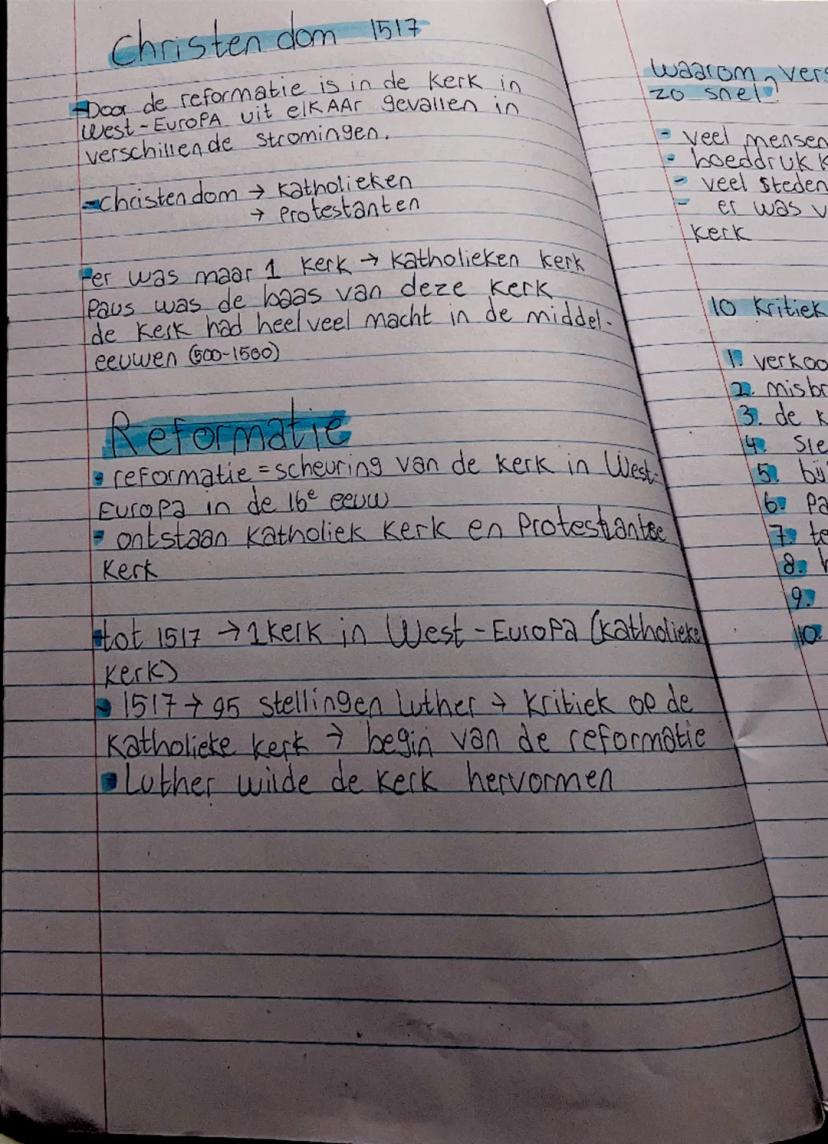 Christendom 1517
- Door de reformatie is in de kerk in
West-Europa uit elkaar gevallen in
verschillende stromingen.
- christendom → katholieken
→ Protestanten
- er was maar 1 kerk → katholieken kerk
Paus was de baas van deze kerk
de kerk had heel veel macht in de middel-
eeuwen (500-1500)
Reformatie
• reformatie = scheuring van de kerk in West-
Europa in de 16e eeuw
• ontstaan katholiek kerk en Protestantse
kerk
• tot 1517 → 1 kerk in West-Europa (katholieke
kerk)
• 1517 → 95 stellingen Luther → kritiek op de
katholieke kerk → begin van de reformatie
• Luther wilde de kerk hervormen
waarom vers
zo snel?
- veel mensen
• boeddruk k
- veel steden
- er was v
kerk
10 kritiek
1. verkoo
2. misbr
3. de k
4. sle
5. bij
6. Pa
7. te
8.
9.
10.